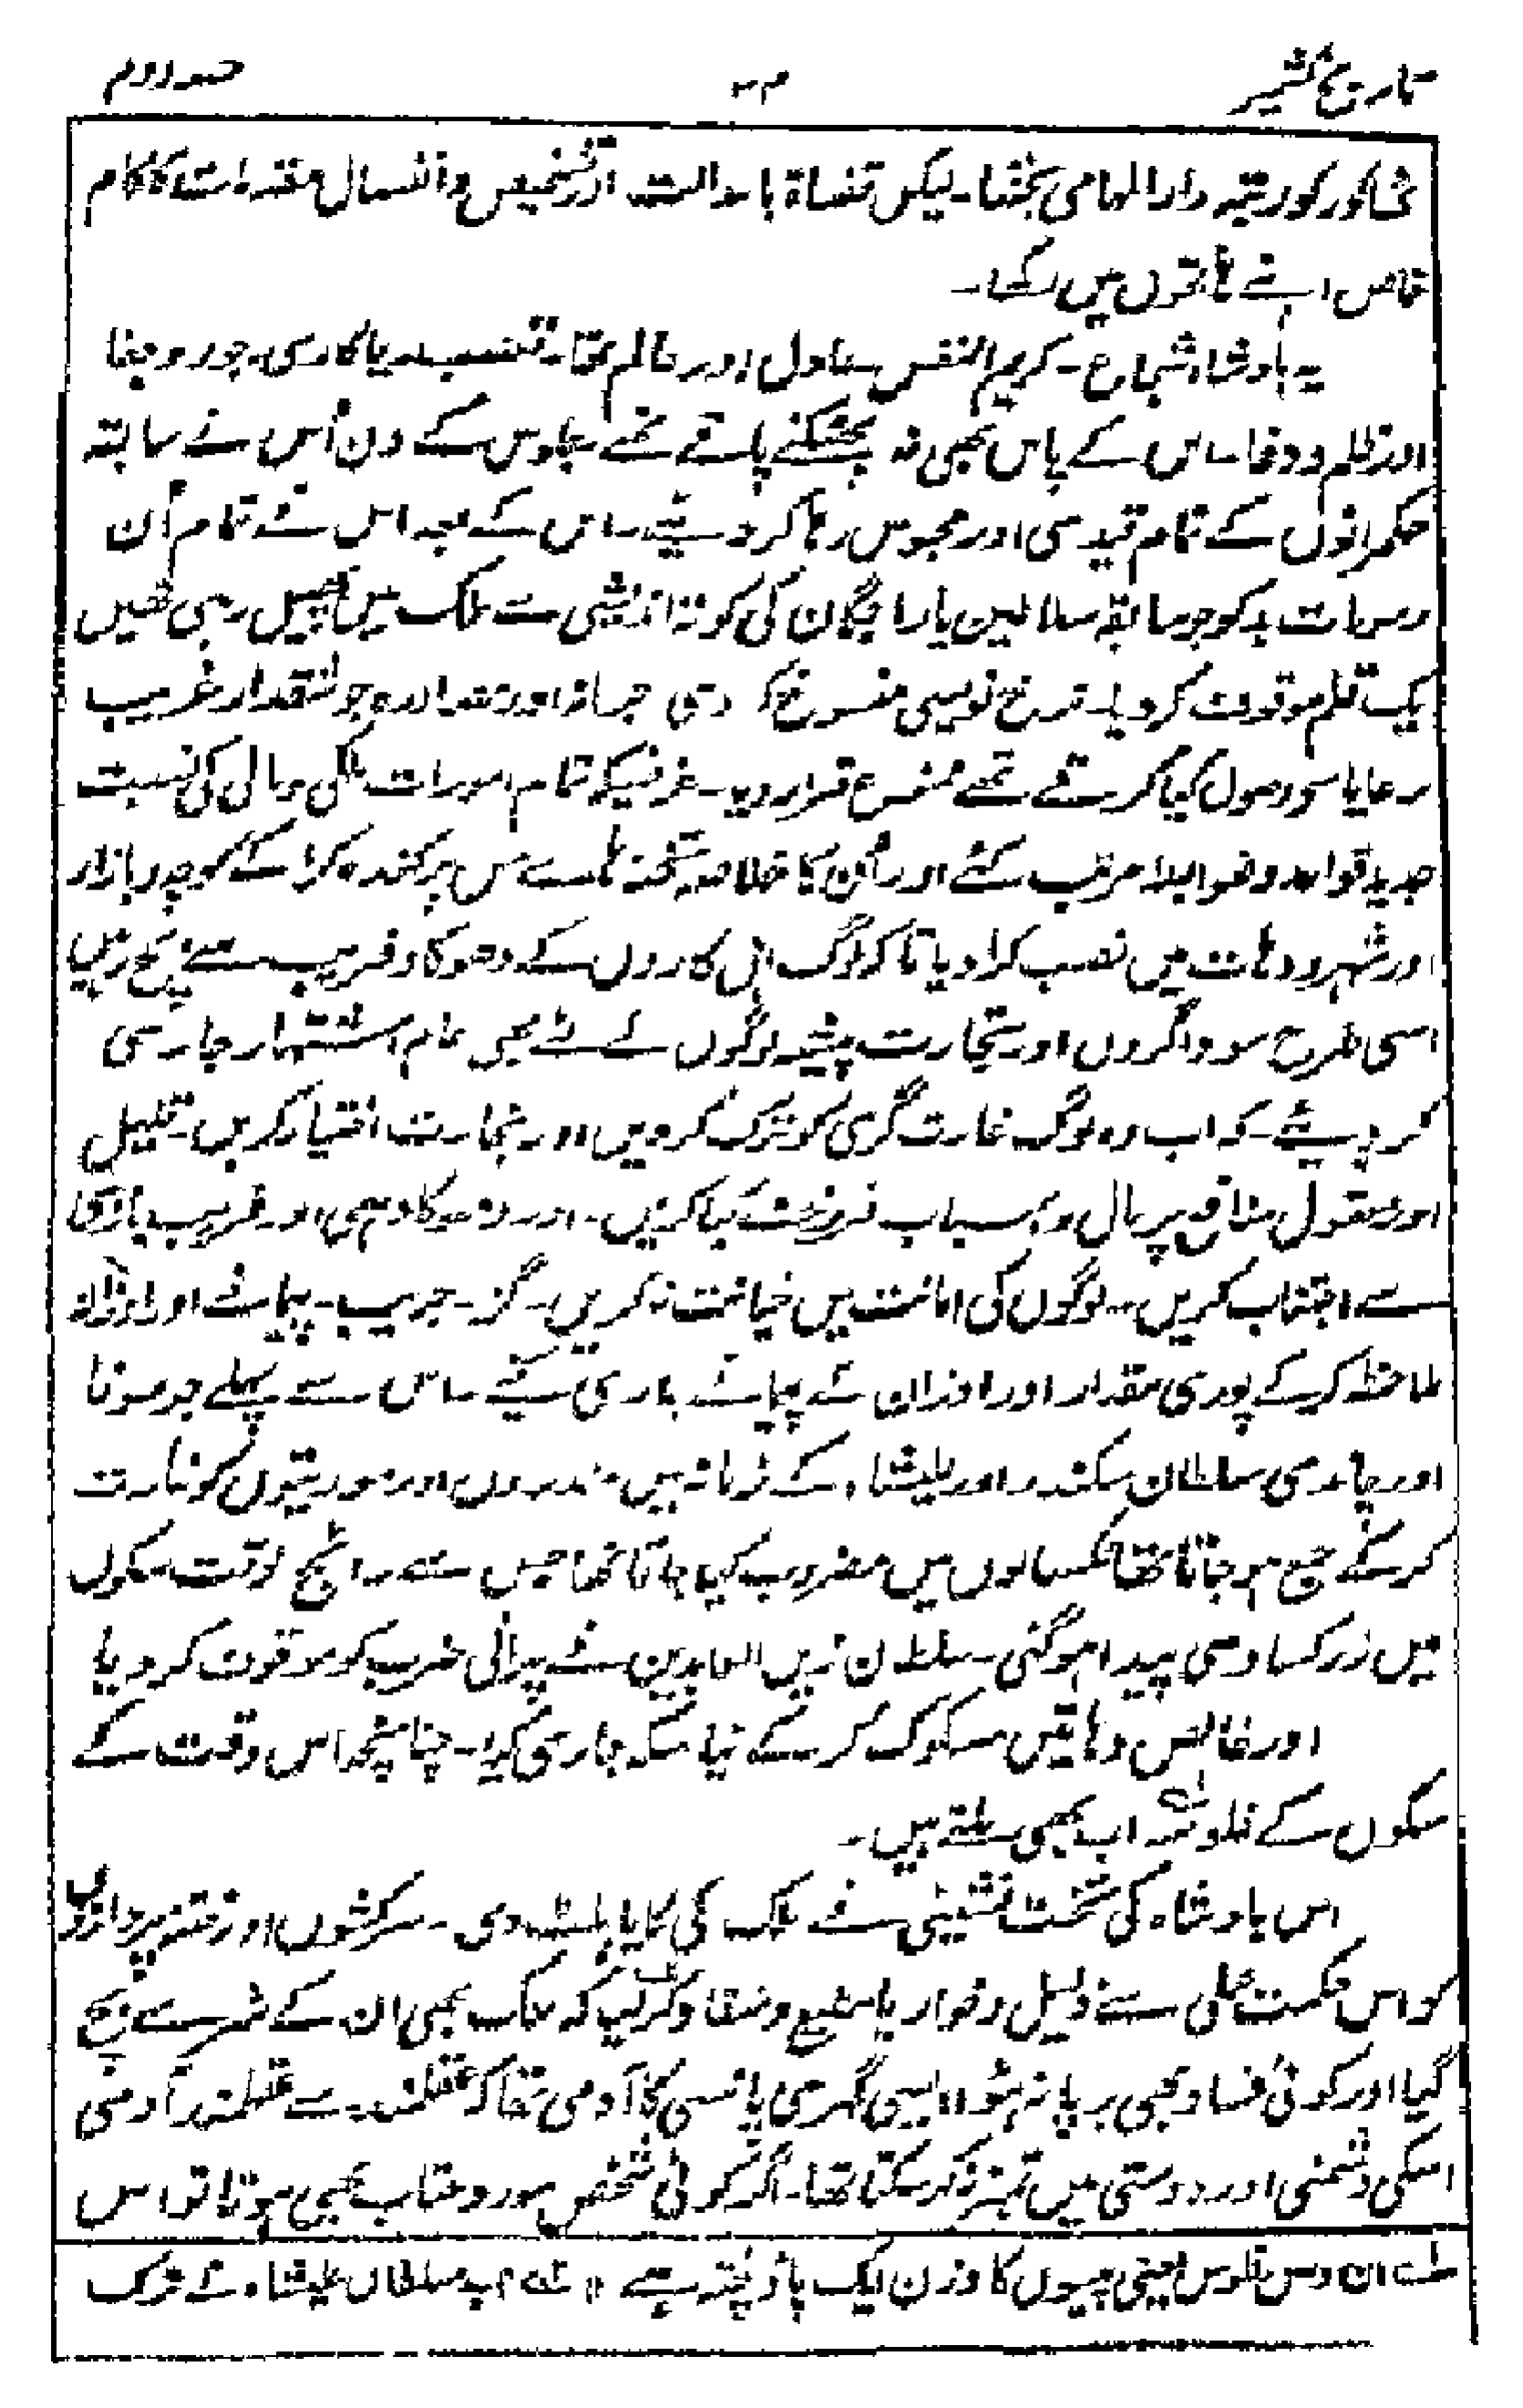 تاریخ کشمیر
حصہ دوم
ٹھاکور کو رتبہ دارالمہامی بخشا۔ لیکن قضاۃ باعدالت اور تشخیص و انفصال مقدمات کا کام
خاص اپنے ہاتھوں میں رکھا۔
یہ بادشاہ شجاع۔ کریم النفس۔ عادل اور عالم تھا۔ تعصب۔ ریا کاری۔ جور و جفا
اور ظلم و دغا اس کے پاس بھی نہ بھٹکنے پاتے تھے جلوس کے دن اُس نے سابقہ
حکمرانوں کے تمام قیدی اور محبوس رہا کر دیئے۔ اس کے بعد اس نے تمام اُن
رسومات بد کو جو سابقہ سلاطین یا راجگان کی کوتہ اندیشی سے ملک میں پھیل رہی تھیں
یک قلم موقوف کر دیا۔ نرخ نویسی منسوخ کر دی جرمانہ اور وہ جو نقدار غریب
رعایا سے وصول کیا کرتے تھے ممنوع قرار دیا۔ غرضیکہ تمام امورات ملکی و مال کی نسبت
جدید قواعد و ضوابط مرتب کئے اور اُن کا خلاصہ تختہ ہائے مس پر کندہ کرا کے کوچہ و بازار
اور شہر و دہات میں نصب کرا دیا تاکہ لوگ اہل کاروں کے دھوکا و فریب سے بچ رہیں
اسی طرح سوداگروں اور تجارت پیشہ لوگوں کے لئے بھی عام اشتہار جاری
کر دیئے۔ کہ اب وہ لوگ غارت گری کو ترک کر دیں اور تجارت اختیار کریں۔ قلیل
اور معقول منافع پر مال و اسباب فروخت کیا کریں۔ اور دھوکا دہی اور فریب بازی
سے اجتناب کریں۔ لوگوں کی امانت میں خیانت نہ کریں۔ گز۔ جریب۔ پیمانے اور اوزان
ملاحظہ کر کے پوری مقدار اور اوزان کے پیمانے جاری کئے۔ اس سے پہلے جو سونا
اور چاندی سلطان سکندر اور علیشاہ کے زمانہ میں مندروں اور مورتیوں کو غارت
کر کے جمع ہو جاتا تھا ٹکسالوں میں مضروب کیا جاتا تھا جس سے رائج الوقت سکوں
میں زر کسادی پیدا ہو گئی۔ سلطان زین العابدین نے پرانی ضرب کو موقوف کر دیا
اور خالص دہاتیں مسکوک کر کے نیا سکہ جاری کیا۔ چنانچہ اس وقت کے
سکوں کے فلوس اب بھی ملتے ہیں۔
اس بادشاہ کی تخت نشینی نے ملک کی کایا پلٹ دی۔ سرکشوں اور فتنہ پردازوں
کو اس حکمت عملی سے ذلیل و خوار یا مطیع و منقاد کر لیا کہ ملک بھی ان کے شر سے بچ
گیا اور کوئی فساد بھی برپا نہ ہؤا۔ ایسی گہری پالسی کا آدمی تھا کہ عقلمند سے عقلمند آدمی
اسکی دشمنی اور دوستی میں تمیز نہ کر سکتا تھا۔ اگر کوئی شخص مورد عتاب بھی ہوتا تو اس
ان دس فلوس یعنی پیسوں کا وزن ایک پاؤ پختہ ہے ۱۲ سلطان علیشاہ